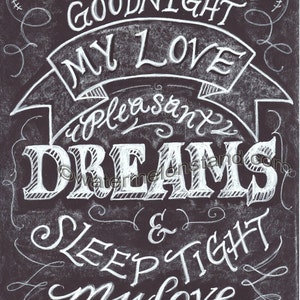 GOODNIGHT
MY LOVE
Pleasant
DREAMS
&
SLEEP TIGHT
My Love